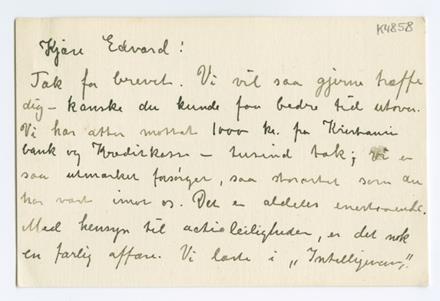 K4858
Kjære Edvard!
Tak for brevet. Vi vil saa gjerne træffe
dig – kanske du kunde faa bedre tid utover.
Vi har atter mottat 1000 kr. fra Kristiania
bank og Kreditkasse – tusind tak; vi er
saa utmærket forsørget, saa storartet som du
har vært imot os. Det er aldeles enestaaende.
Med hensyn til actieleiligheden, er det nok
en farlig affære. Vi læste i „Intelligensen",